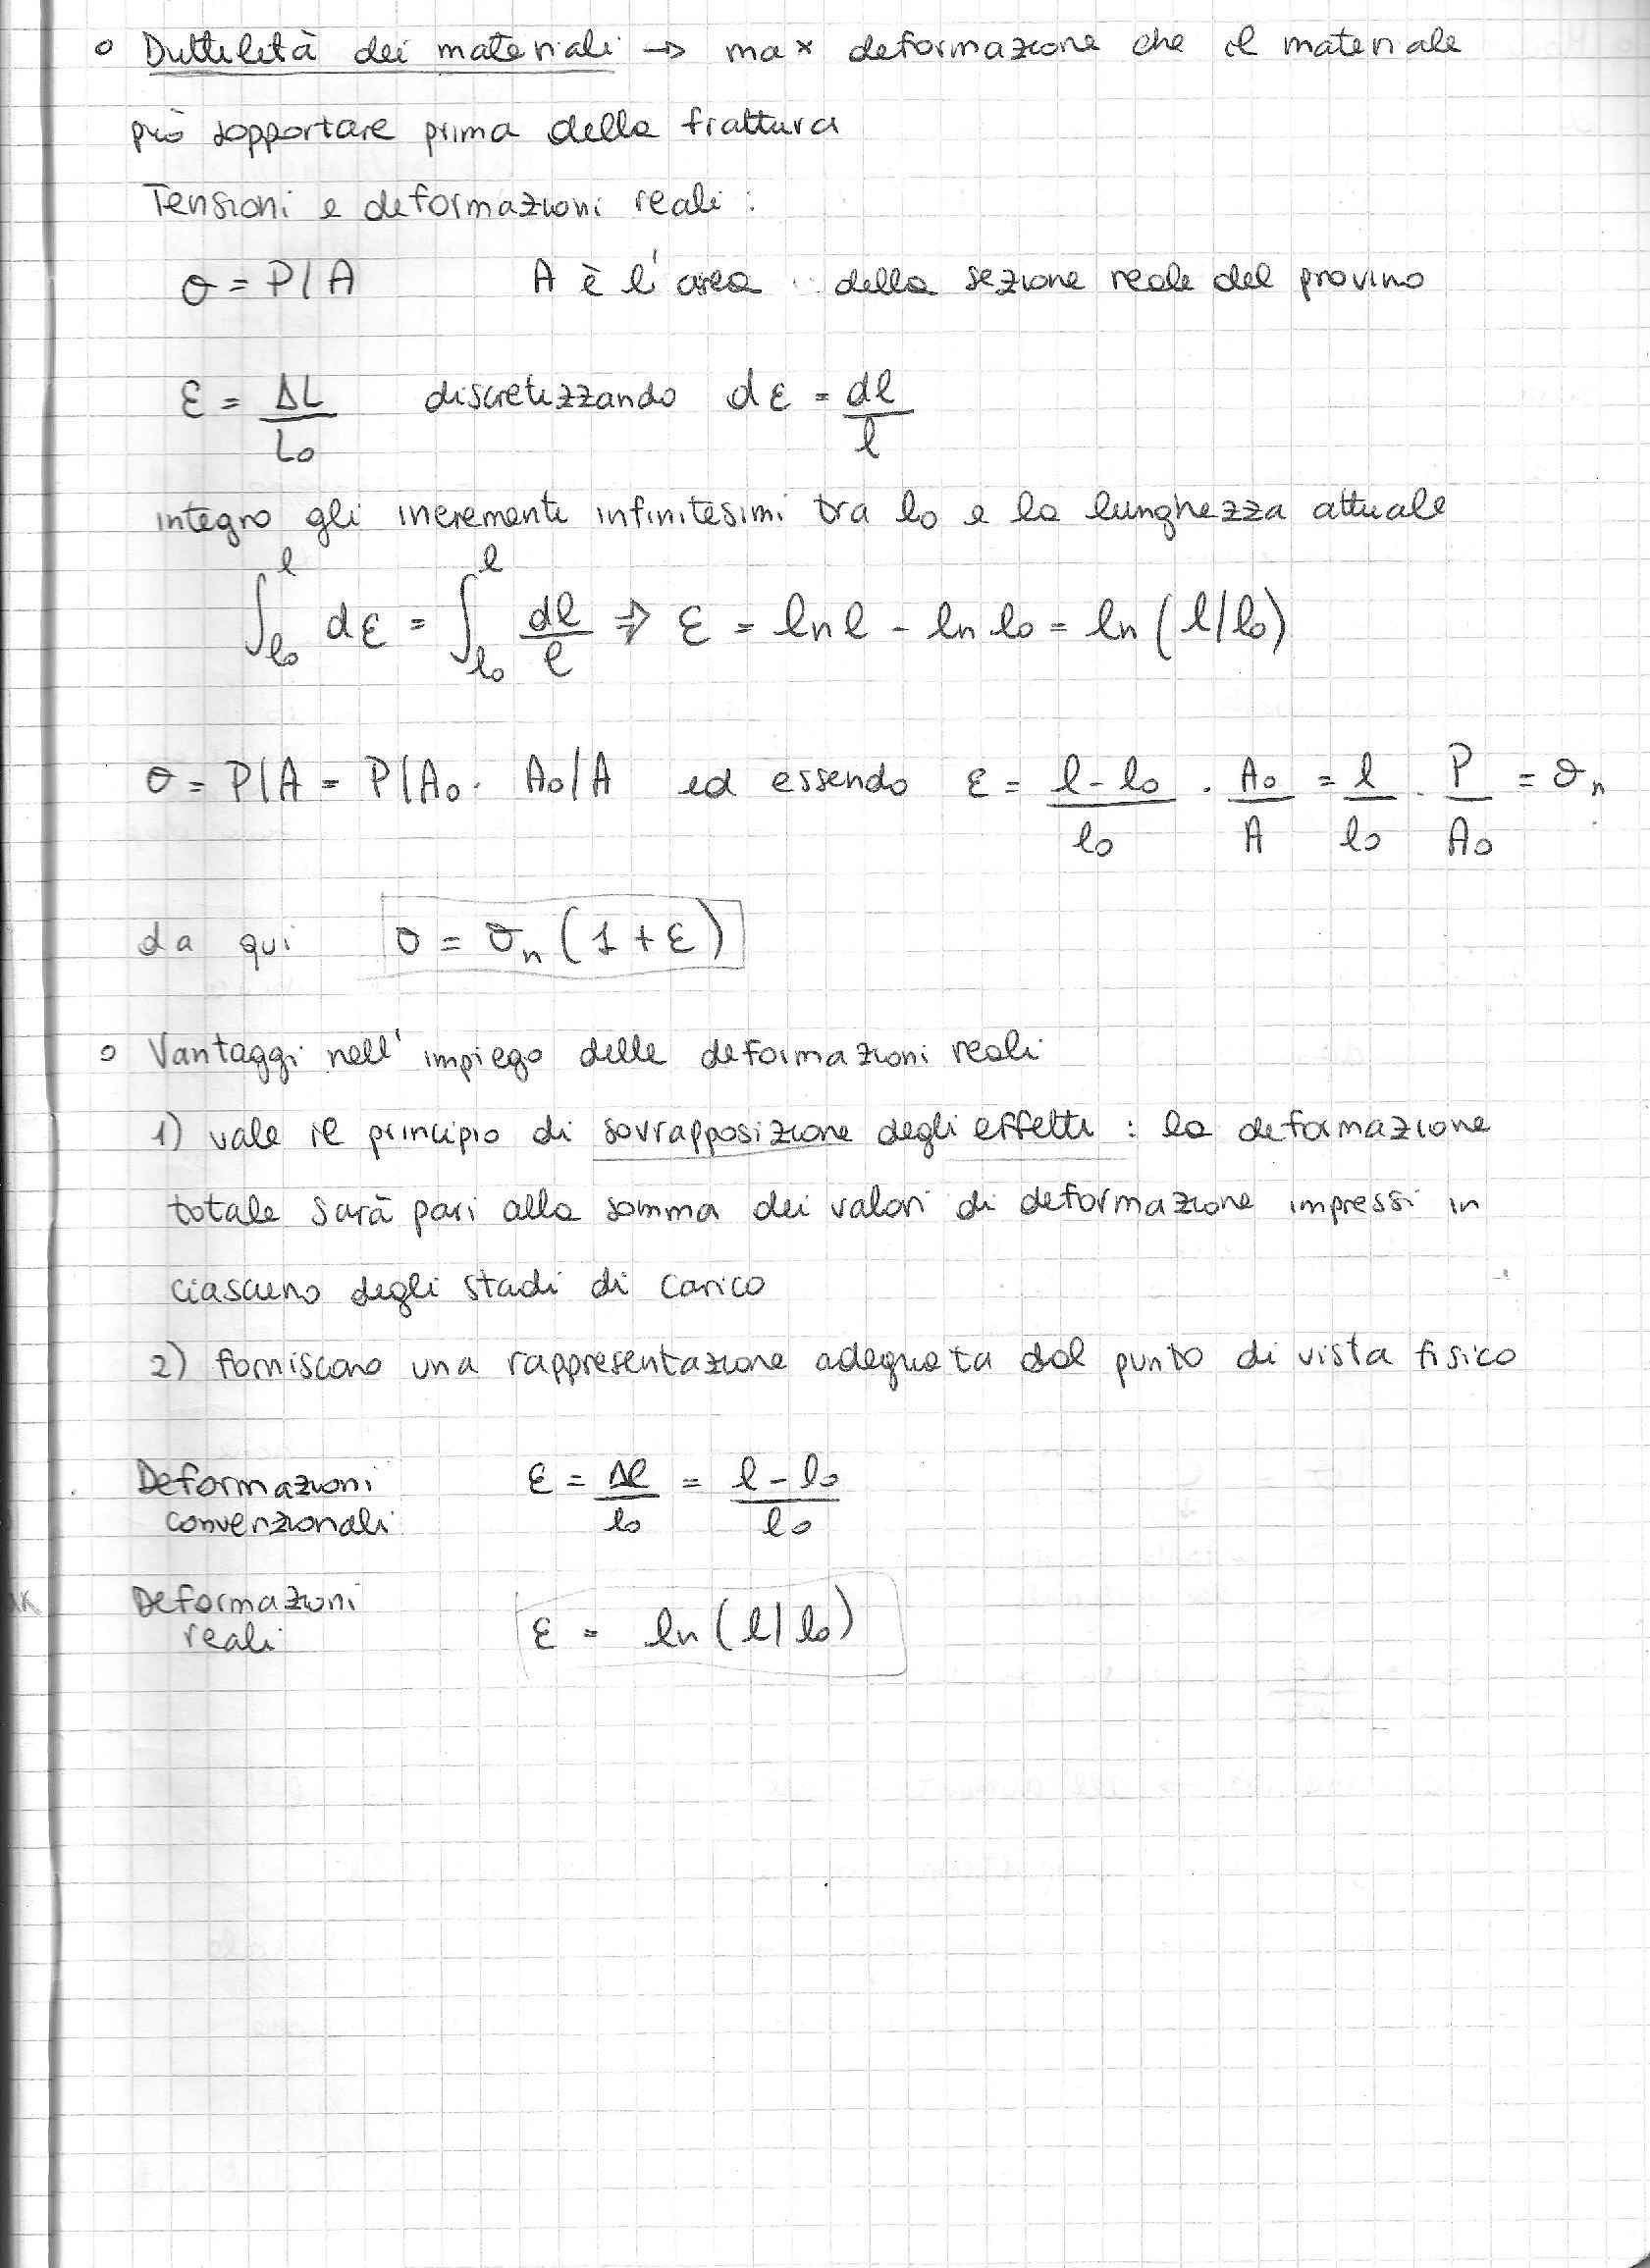 ° Duttilità dei materiali → max deformazione che il materiale
può sopportare prima della frattura
Tensioni e deformazioni reali:
σ = P/A A è l'area della sezione reale del provino
ε = ΔL/L₀ discretizzando dε = dl/l
integro gli incrementi infinitesimi tra l₀ e la lunghezza attuale
∫_l₀^l dε = ∫_l₀^l dl/l ⇒ ε = ln l - ln l₀ = ln (l/l₀)
σ = P/A = P/A₀ · A₀/A ed essendo ε = (l - l₀)/l₀ · A₀/A = l/l₀ · P/A₀ = σₙ
da qui σ = σₙ (1 + ε)
° Vantaggi nell' impiego delle deformazioni reali
1) vale il principio di sovrapposizione degli effetti : la deformazione
totale sarà pari alla somma dei valori di deformazione impressi in
ciascuno degli stadi di carico
2) forniscono una rappresentazione adeguata dal punto di vista fisico
Deformazioni convenzionali ε = Δl/l₀ = (l - l₀)/l₀
Deformazioni reali ε = ln (l/l₀)